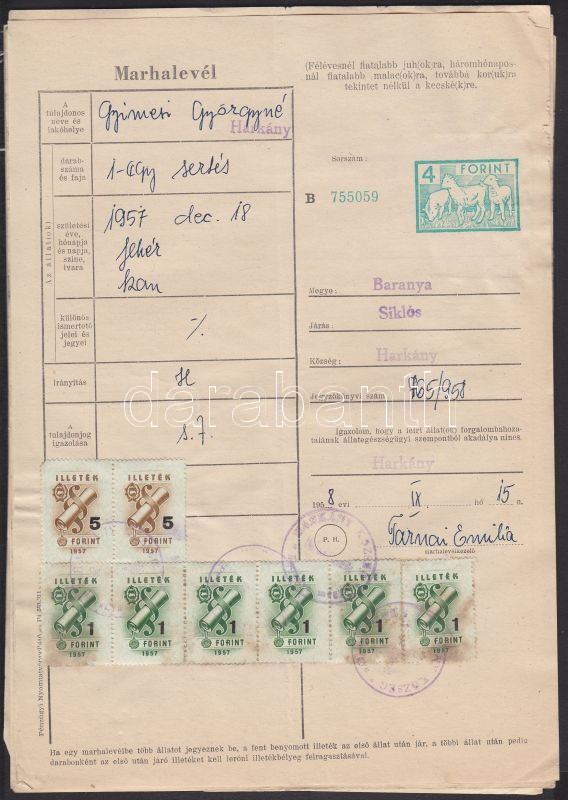 Marhalevél
(Félévesnél fiatalabb juh(ok)ra, háromhónapos-
nál fiatalabb malac(ok)ra, továbba kor(uk)ra
tekintet nélkül a kecské(k)re.
A
tulajdonos
neve és
lakóhelye
Gyimesi Györgyné
Harkány
darab-
száma
és faja
1-egy sertés
Az állat(ok)
születési
éve,
hónapja
és napja,
színe,
ivara
1957 dec. 18
fehér
kan
különös
ismertető
jelei és
jegyei
%
Irányítás
H
A
tulajdonjog
igazolása
s.7.
Sorszám:
B 755059
4 FORINT
Megye: Baranya
Járás: Siklós
Község: Harkány
Jegyzőkönyvi szám 765/958
Igazolom, hogy a leírt állat(ok) forgalombahoza-
talának állategészségügyi szempontból akadálya nincs.
Harkány
1958 évi IX hó 15 n.
P. H.
Tárnai Emilia
marhalevélkezelő
ILLETÉK ILLETÉK
5 5
FORINT FORINT
1957 1957
ILLETÉK ILLETÉK ILLETÉK ILLETÉK ILLETÉK ILLETÉK
1 1 1 1 1 1
FORINT FORINT FORINT FORINT FORINT FORINT
1957 1957 1957 1957 1957 1957
Ha egy marhalevélbe több állatot jegyeznek be, a fent benyomott illeték az első állat után jár, a többi állat után pedig
darabonként az első után járó illetéket kell leróni illetékbélyeg felragasztásával.
darabanth